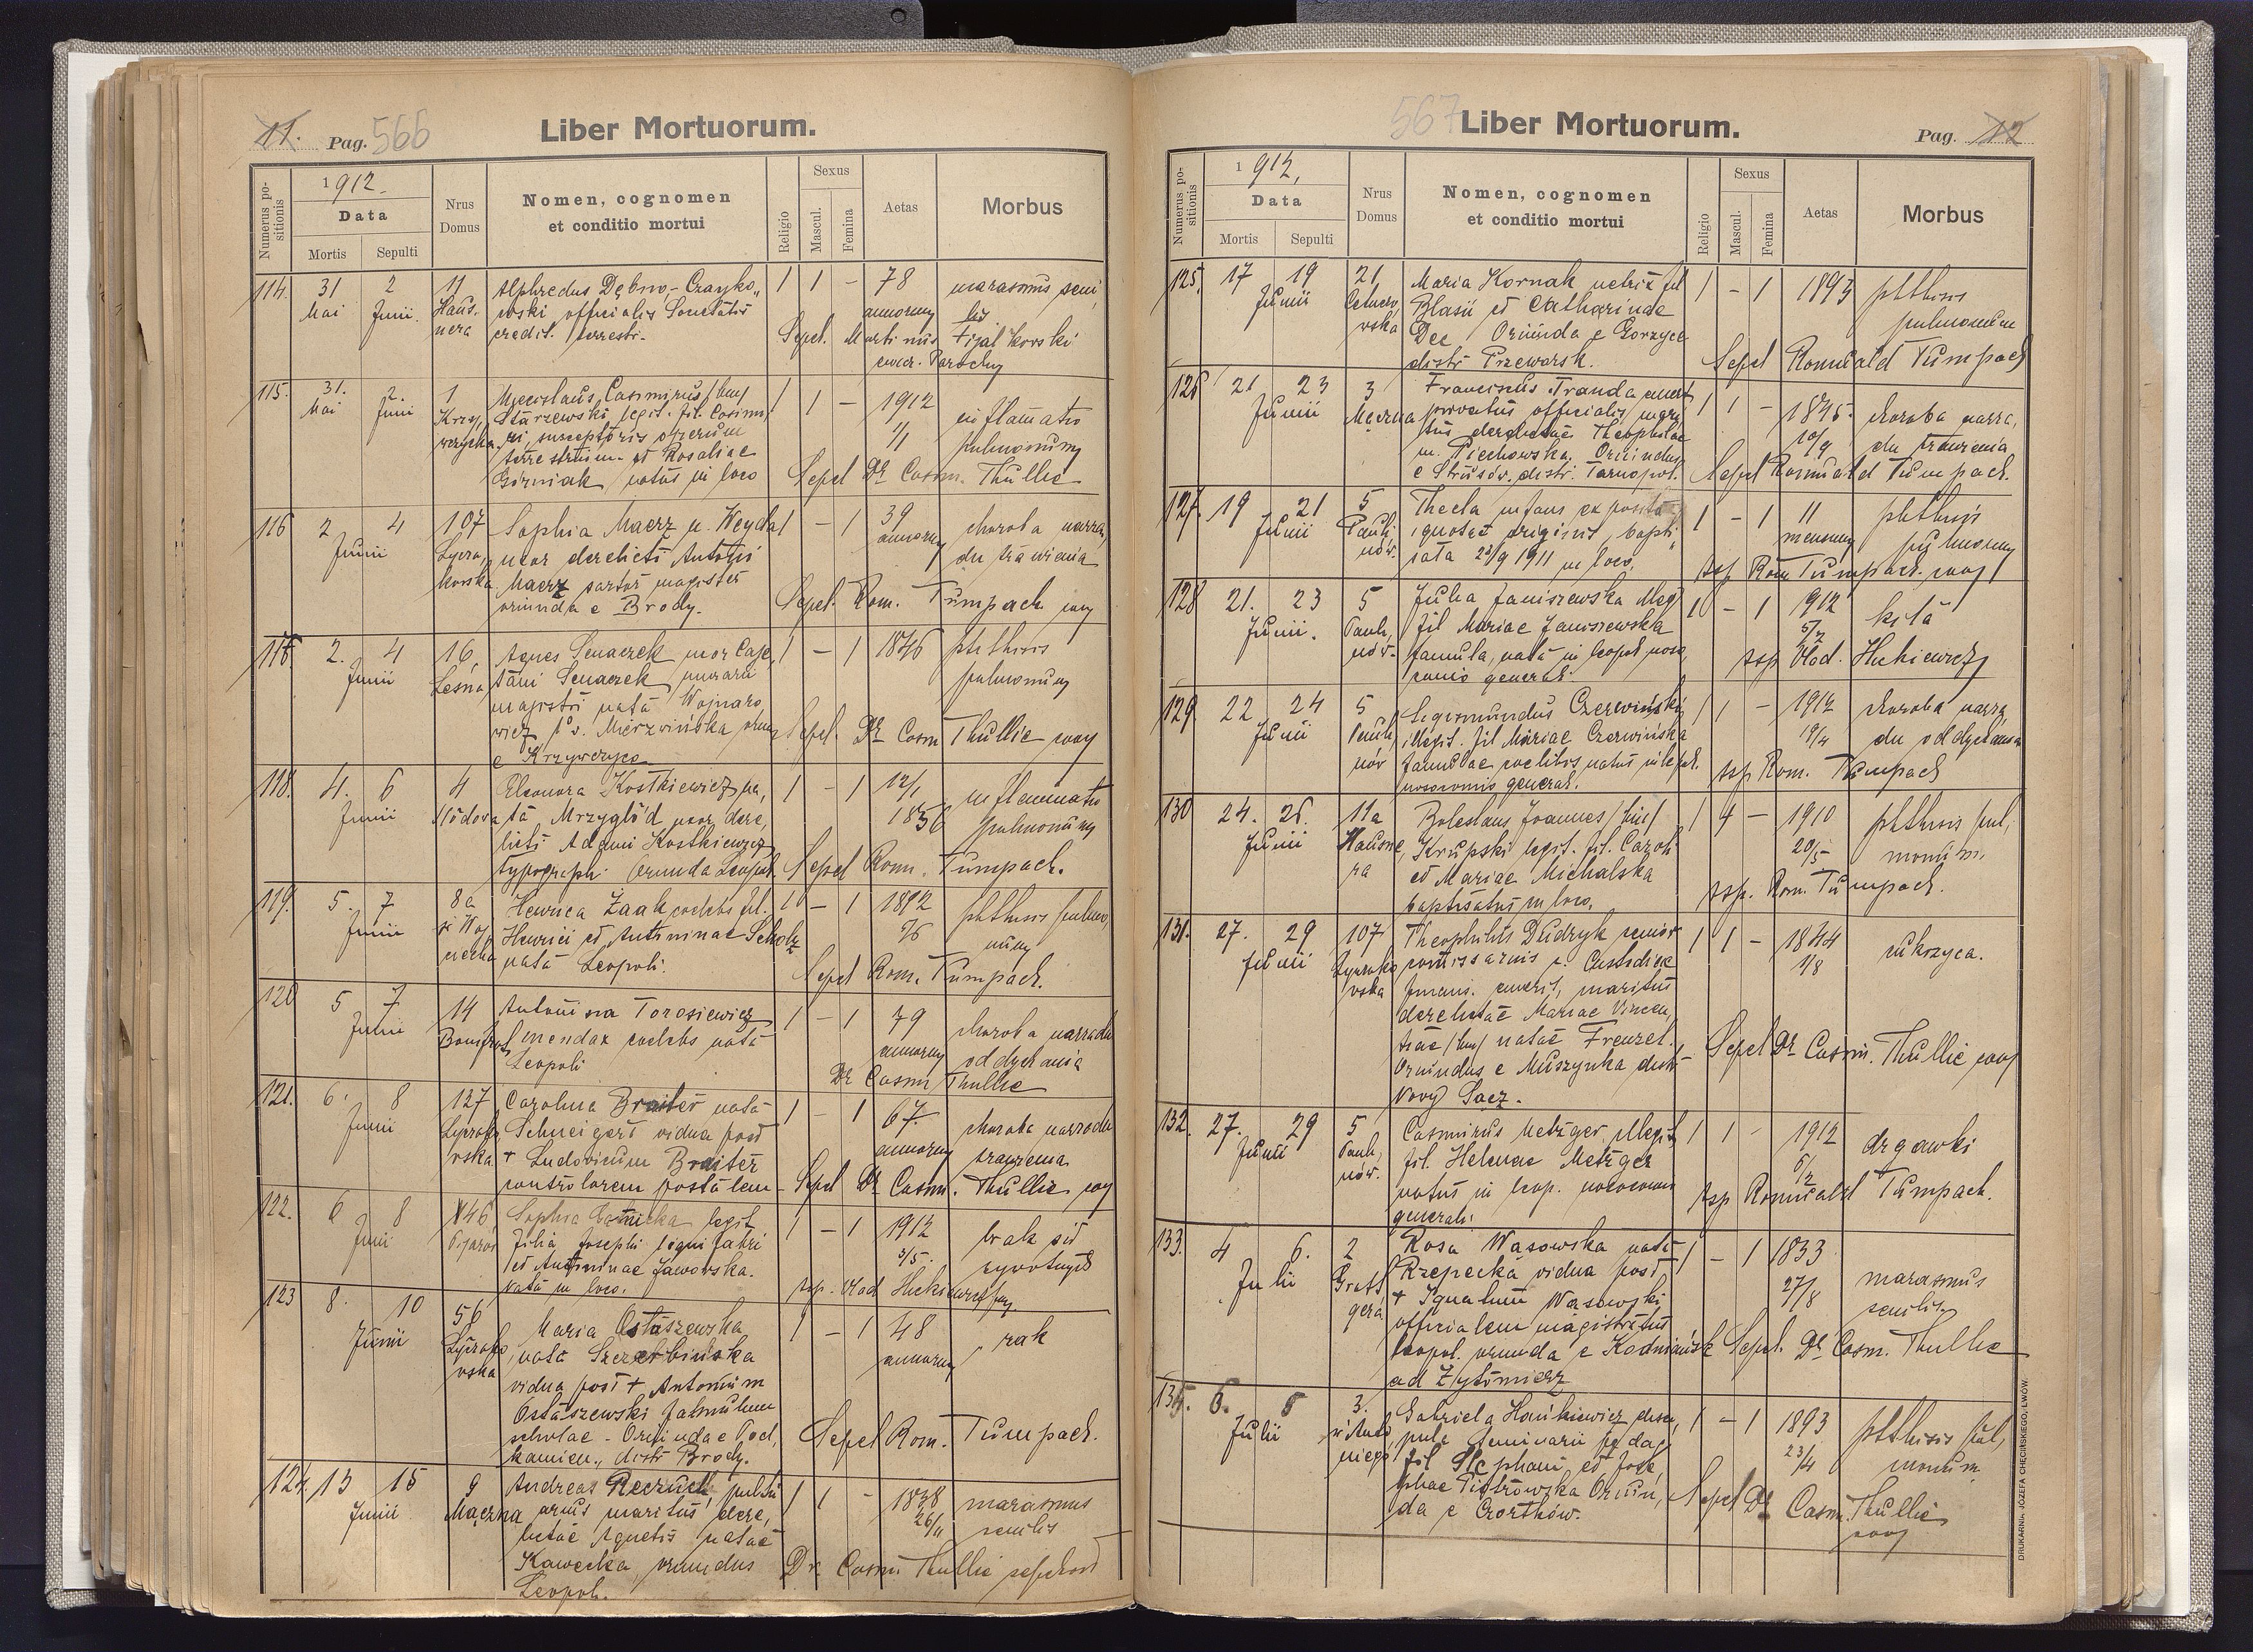 11. Pag. 566
Liber Mortuorum.
Numerus positionis
1912.
Data
Mortis Sepulti
Nrus Domus
Nomen, cognomen
et conditio mortui
Religio
Sexus
Mascul. Femina
Aetas
Morbus
114. 31 Mai 2 Junii 11 Hausnera
Alphredus Dębno-Czayko-
wski officialis Societatis
credit. terrestr.
1 1 - 78 annorum marasmus senilis
Sepel. Martinus Fijałkowski
Parochus
115. 31. Mai 2. Junii 1
Miecislaus Casimirus /bin/
Starzewski legit. fil. Casimi
ri, susceptoris operum
terrestrium et Rosaliae
Górniak natus in loco
1 1 - 1912 1/1 inflamatio pulmonum
Sepel Dr Casim. Thullie
116 2 4 Junii 107 Łyczakowska
Sophia Maerz n. Weyda
uxor derelicti Antonii
Maerz sartor magistri
oriunda e Brody.
1 - 1 39 annorum choroba narzą
du trawienia
Sepel. Rom. Tumpach coop
117 2. 4 Junii 16 Leśna
Agnes Senaczek uxor Caje
tani Senaczek murarii
magistri nata Wojnaro
wicz 1o v. Mierzwińska
e Krzywczyce
1 - 1 1846 phthisis
pulmonum
Sepel. Dr Casim Thullie coop
118. 4. 6 Junii 4 Miodova
Eleonora Kostkiewicz na
ta Mrzygłód uxor dere
licti Adami Kostkiewicz
typograph. Oriunda Leopol.
1 - 1 12/1 1856 inflammatio
pulmonum
Sepel Rom. Tumpach.
119. 5. 7 Junii 8a
Henrica Żaak coelebs fil.
Henrici et Antoninae Scholz
nata Leopoli.
1 - 1 1892 phthisis pulmo
num
Sepel Rom. Tumpach.
120 5 7 Junii 14
Antonina Torosiewicz
mendax coelebs nata
Leopoli
1 - 1 79 annorum choroba narządu
oddychania
Dr Casim Thullie
121. 6. 8 Junii 127 Łyczakowska
Carolina Braiter nata
Schweigert vidua post
+ Ludovicum Braiter
controlorem postalem
1 - 1 67 annorum choroba narządu
trawienia
Sepel Dr Casim. Thullie coop
122. 6 8 Junii 46 Pijarow
Sophia legit
filia Josephi
et Antoninae Jaworska.
nata in loco.
1 - 1 1912 3/5. brak sił
żywotnych
ssp. Vlad Hickiewicz
123 8. 10 Junii 56 Łyczakowska
Maria Ostaszewska
nata Szczerbińska
vidua post + Antonium
Ostaszewski famulum
scholae - Oriunda e Pod
kamien, distr Brody.
1 - 1 48 annorum rak
Sepel Rom. Tumpach.
124. 13 15 Junii 9 Mączna
Andreas Recruch
maritus dere
lictae Agnetis natae
Kawecka, oriundus
Leopol.
1 1 - 1838 26/11 marasmus
senilis
Dr Casim Thullie
567 Liber Mortuorum. Pag. 12
Numerus positionis
1912.
Data
Mortis Sepulti
Nrus Domus
Nomen, cognomen
et conditio mortui
Religio
Sexus
Mascul. Femina
Aetas
Morbus
125. 17 19 Junii 21
Maria Kornak fil
Blasii et Catharinae
Dec Oriunda e Gorzyce
distr Przeworsk.
1 - 1 1893 phthisis
pulmonum
Sepel Romuald Tumpach
126 21 23 Junii 3 Mączna
Franciscus Tranda
privatus officialis mari
tus derelictae Theophilae
n. Piechowska, Oriundus
e Strusów, distr. Tarnopol.
1 1 - 1845. 10/9 choroba narzą
du trawienia
Sepel Romuald Tumpach.
127. 19 21 Junii 5 Paulinów.
Thecla infans exposita
ignotae originis, bapti
sata 22/9 1911 in loco.
1 - 1 11 mensium phthisis
pulmonum
ssp Rom Tumpach. coop
128 21. 23 Junii. 5 Paulinów.
Julia Janiszewska illeg
fil Mariae Janiszewska
famula, nata in Leopol noso
comio general.
1 - 1 1912 5/2 kiła
ssp Vlad. Hickiewicz
129 22 24 Junii 5 Paulinów
Sigismundus Czerwiński
illegit. fil Mariae Czerwińska
famulae coelibis natus in Leopol.
nosocomio general.
1 1 - 1912 19/4 choroba narzą
du oddychania
ssp Rom. Tumpach
130 24. 26. Junii 11a Hausnera
Boleslaus Joannes /bin/
Krupski legit. fil. Caroli
et Mariae Michalska
baptisatus in loco.
1 1 - 1910 20/5 phthisis pul
monum.
ssp. Rom. Tumpach.
131. 27. 29 Junii 107 Łyczakowska
Theophilus Dudryk senior
comissarius c. Custodiae
finans. emerit, maritus
derelictae Mariae Vincen
tiae /bin/ natae Frenzel.
Oriundus e Muszynka distr
Novy Sącz.
1 1 - 1844 1/8 cukrzyca.
Sepel Dr Casim. Thullie coop
132. 27. 29 Junii 5 Paulinów.
Casimirus Metzger illegit
fil. Helenae Metzger
natus in Leop. nosocomio
generali
1 1 - 1912 6/2 drgawki
ssp Romuald Tumpach.
133. 4 6. Julii 2
Rosa Wąsowska nata
Rzepecka vidua post
+ Ignatium Wąsowski
officialem magistratus
Leopol. oriunda e Kodnińsk
ad Żytomierz
1 - 1 1833 27/8 marasmus
senilis
Sepel. Dr Casim. Thullie
134. 6. 8 Julii 3.
Gabriela Hankiewicz disci
pula seminarii pedag
fil Stephani et Jose
phae Piotrowska Oriun
da e Czortków.
1 - 1 1893 23/4 phthisis pul
monum
Sepel Dr Casim. Thullie
coop
DRUKARNIA JÓZEFA CHĘCIŃSKIEGO, LWÓW.